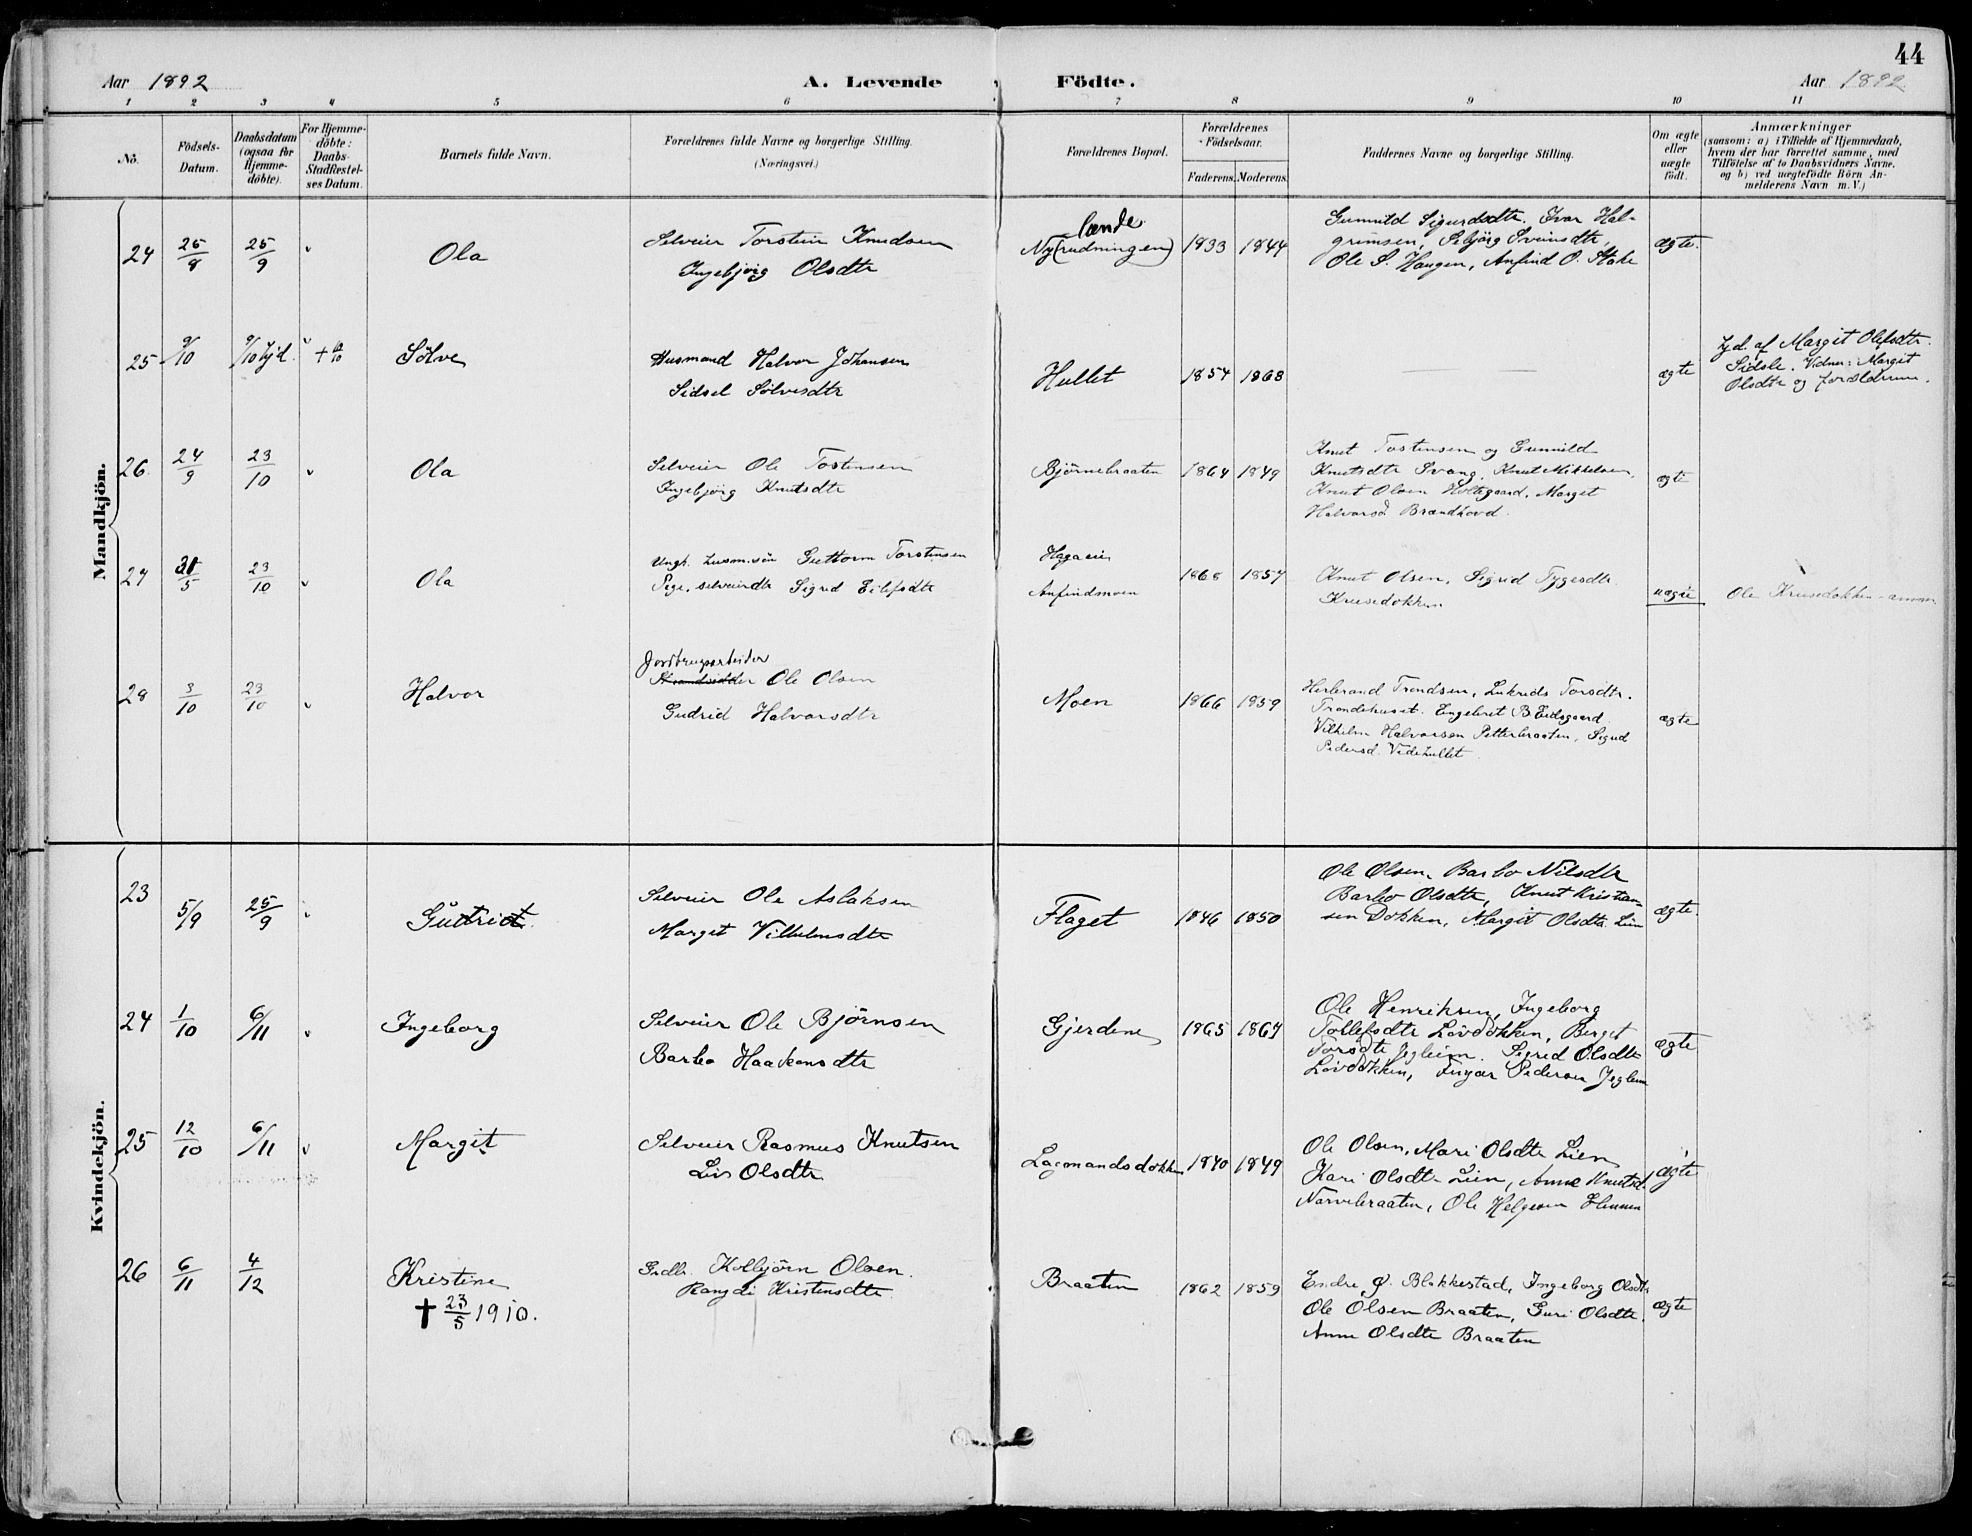 44
Aar 1892
A. Levende Födte.
Aar 1892
1 2 3 4 5 6 7 8 9 10 11
No.
Födsels-Datum.
Daabsdatum (ogsaa for Hjemme-döbte).
For Hjemme-döbte: Daabs-Stadfæstel-ses Datum.
Barnets fulde Navn.
Forældrenes fulde Navne og borgerlige Stilling. (Næringsvei.)
Forældrenes Bopæl.
Forældrenes Födselsaar.
Faderens. Moderens.
Faddernes Navne og borgerlige Stilling.
Om ægte eller uægte födt.
Anmærkninger
(saasom: a) i Tilfælde af Hjemmedaab,
hvem der har forrettet samme, med
Tilföielse af to Daabsvidners Navne,
og b) ved uægtefödte Börn An-
melderens Navn m. V.)
Mandkjön.
24 25/8 25/9 Ola
Selveier Torstein Knudsen
Ingebjörg Olsdtr
lænde
Ny(rudningen) 1833 1844
Gunnild Sigurdsdtr. Ivar Hal-
grimsen, Sebjörg Sveinsdtr,
Ole S. Haugen, Anfind O. Stake
ægte.
25 9/10 9/10 hjd. + /10 Sölve
Husmand Halvor Johansen
Sidsel Sölvesdtr
Hullet 1854 1868
ægte
hjd. af Margit Olefsdtr.
Sidsle. Vidner: Margit
Olsdtr og forældrene.
26. 24/9 23/10 Ola
Selveier Ole Tostensen
Ingebjörg Knutsdtr
Björnebraaten 1864 1849
Knut Tostensen og Gunnild
Knutsdtr Svang, Knut Mikkelsen,
Knut Olsen Holtegaard, Marget
Halvorsd Brandhovd.
ægte
27 /5 23/10 Ola
Ungk. husm.sön Guttorm Torstensen
Pige, selveierdtr Sigrid Eilefsdtr
Hagaeie
Anfindsmoen
1868 1857
Knut Olsen, Sigrid Tygesdtr
Krusedokken
uægte
Ole Krusedokken
28 3/10 23/10 Halvor
Jordbrugsarbeider
Ole Olsen
Gudrid Halvorsdtr
Moen 1866 1859
Herbrand Trondsen, Lukrids Torsdtr.
Trondehuset. Engebret B Eidsgaard
Vilhelm Halvorsen Petterbraaten, Sigrid
Pedersd. Videhullet
ægte
Kvindekjön.
23 5/9 25/9 Guttrid
Selveier Ole Aslaksen
Margit Vilhelmsdtr
Flaget 1846 1850
Ole Olsen, Barbo Nilsdtr
Barbo Olsdtr, Knut Kristian-
sen Dokken, Margit Olsdtr. Lien
ægte.
24 1/10 6/11 Ingeborg
Selveier Ole Björnsen
Barbo Haakonsdtr
Gjerdene 1865 1864
Ole Henriksen, Ingeborg
Tollefsdtr Lövdokken, Berget
Torsdtr Jegleim. Sigrid Olsdtr
Lövdokken, Ingar Pedersen Jegleim
ægte
25 12/10 6/11 Margit
Selveier Rasmus Knutsen
Liv Olsdtr
Lagmandsdokken 1840 1849
Ole Olsen, Mari Olsdtr Lien
Kari Olsdtr Lien, Anne Knutsd.
Narvebraaten, Ole Helgesen
ægte
26 6/11 4/12 Kristine
† 23/5 1910.
Grdbr. Kolbjörn Olsen.
Rangdi Kristensdtr
Braaten 1862 1859
Endre O. Blakkestad, Ingeborg Olsdtr
Ole Olsen Braaten, Guri Olsdtr,
Anne Olsdtr Braaten
ægte